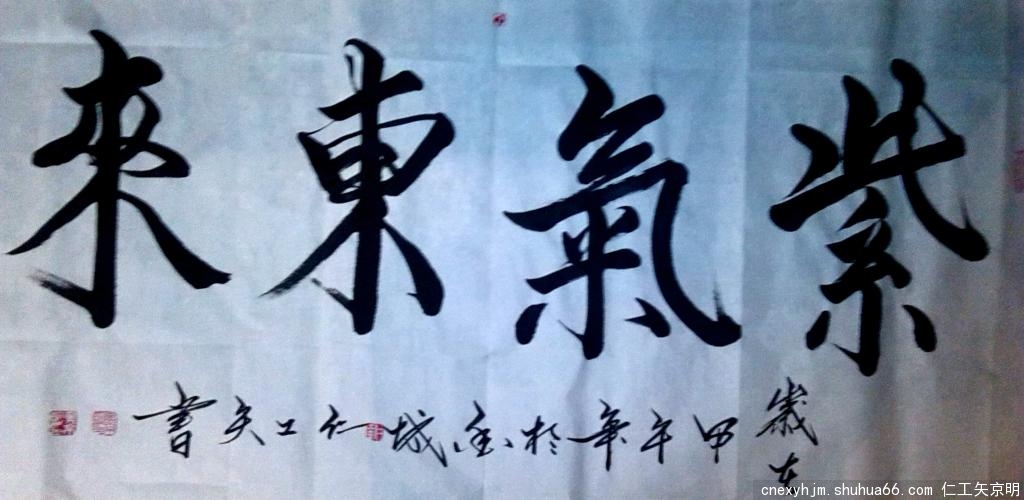 紫氣東來
歲在
甲午年於城仁工矢書
cnexyhjm.shuhua66.com 仁工矢京明